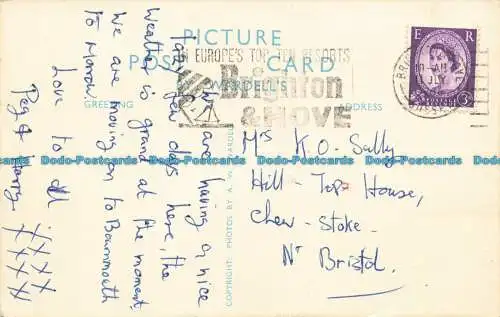 PICTURE
POST CARD
WARDELL'S
GREETING
ADDRESS
IN EUROPE'S TOP TEN RESORTS
Brighton
& HOVE
E R
JLY
We are having a nice
few days here, the
weather is grand at the moment.
We are moving on to Bournmouth
to morrow.
Love to all
Peg & Harry
XXXX
XXXX
COPYRIGHT: PHOTOS BY A. W. WARDELL
Mrs K.O. Sally
Hill-Top House,
Chew-Stoke-
Nr Bristol.
Dodo-Postcards Dodo-Postcards Dodo-Postcards Dodo-Postcards Dodo-Postcards Dodo-Postcards